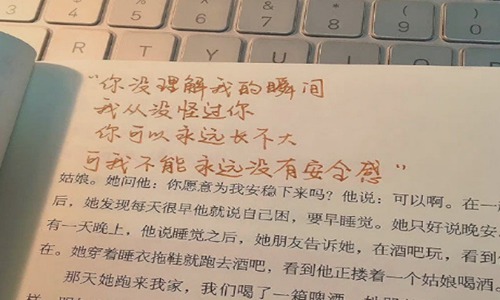 & 7 * 8 ( 9 ) 0
R T Y U I O P
“你没理解我的瞬间
我从没怪过你
你可以永远长不大
可我不能永远没有安全感”
姑娘。她问他：你愿意为我安稳下来吗？他说：可以啊。在一
后，她发现每天很早他就说自己困，要早睡觉。她只好说晚安。
有一天晚上，他说睡觉之后，她朋友告诉她，在酒吧玩，看到
在。她穿着睡衣拖鞋就跑去酒吧，看到他正搂着一个姑娘喝酒
那天她跑来我家，我们喝了一箱啤酒